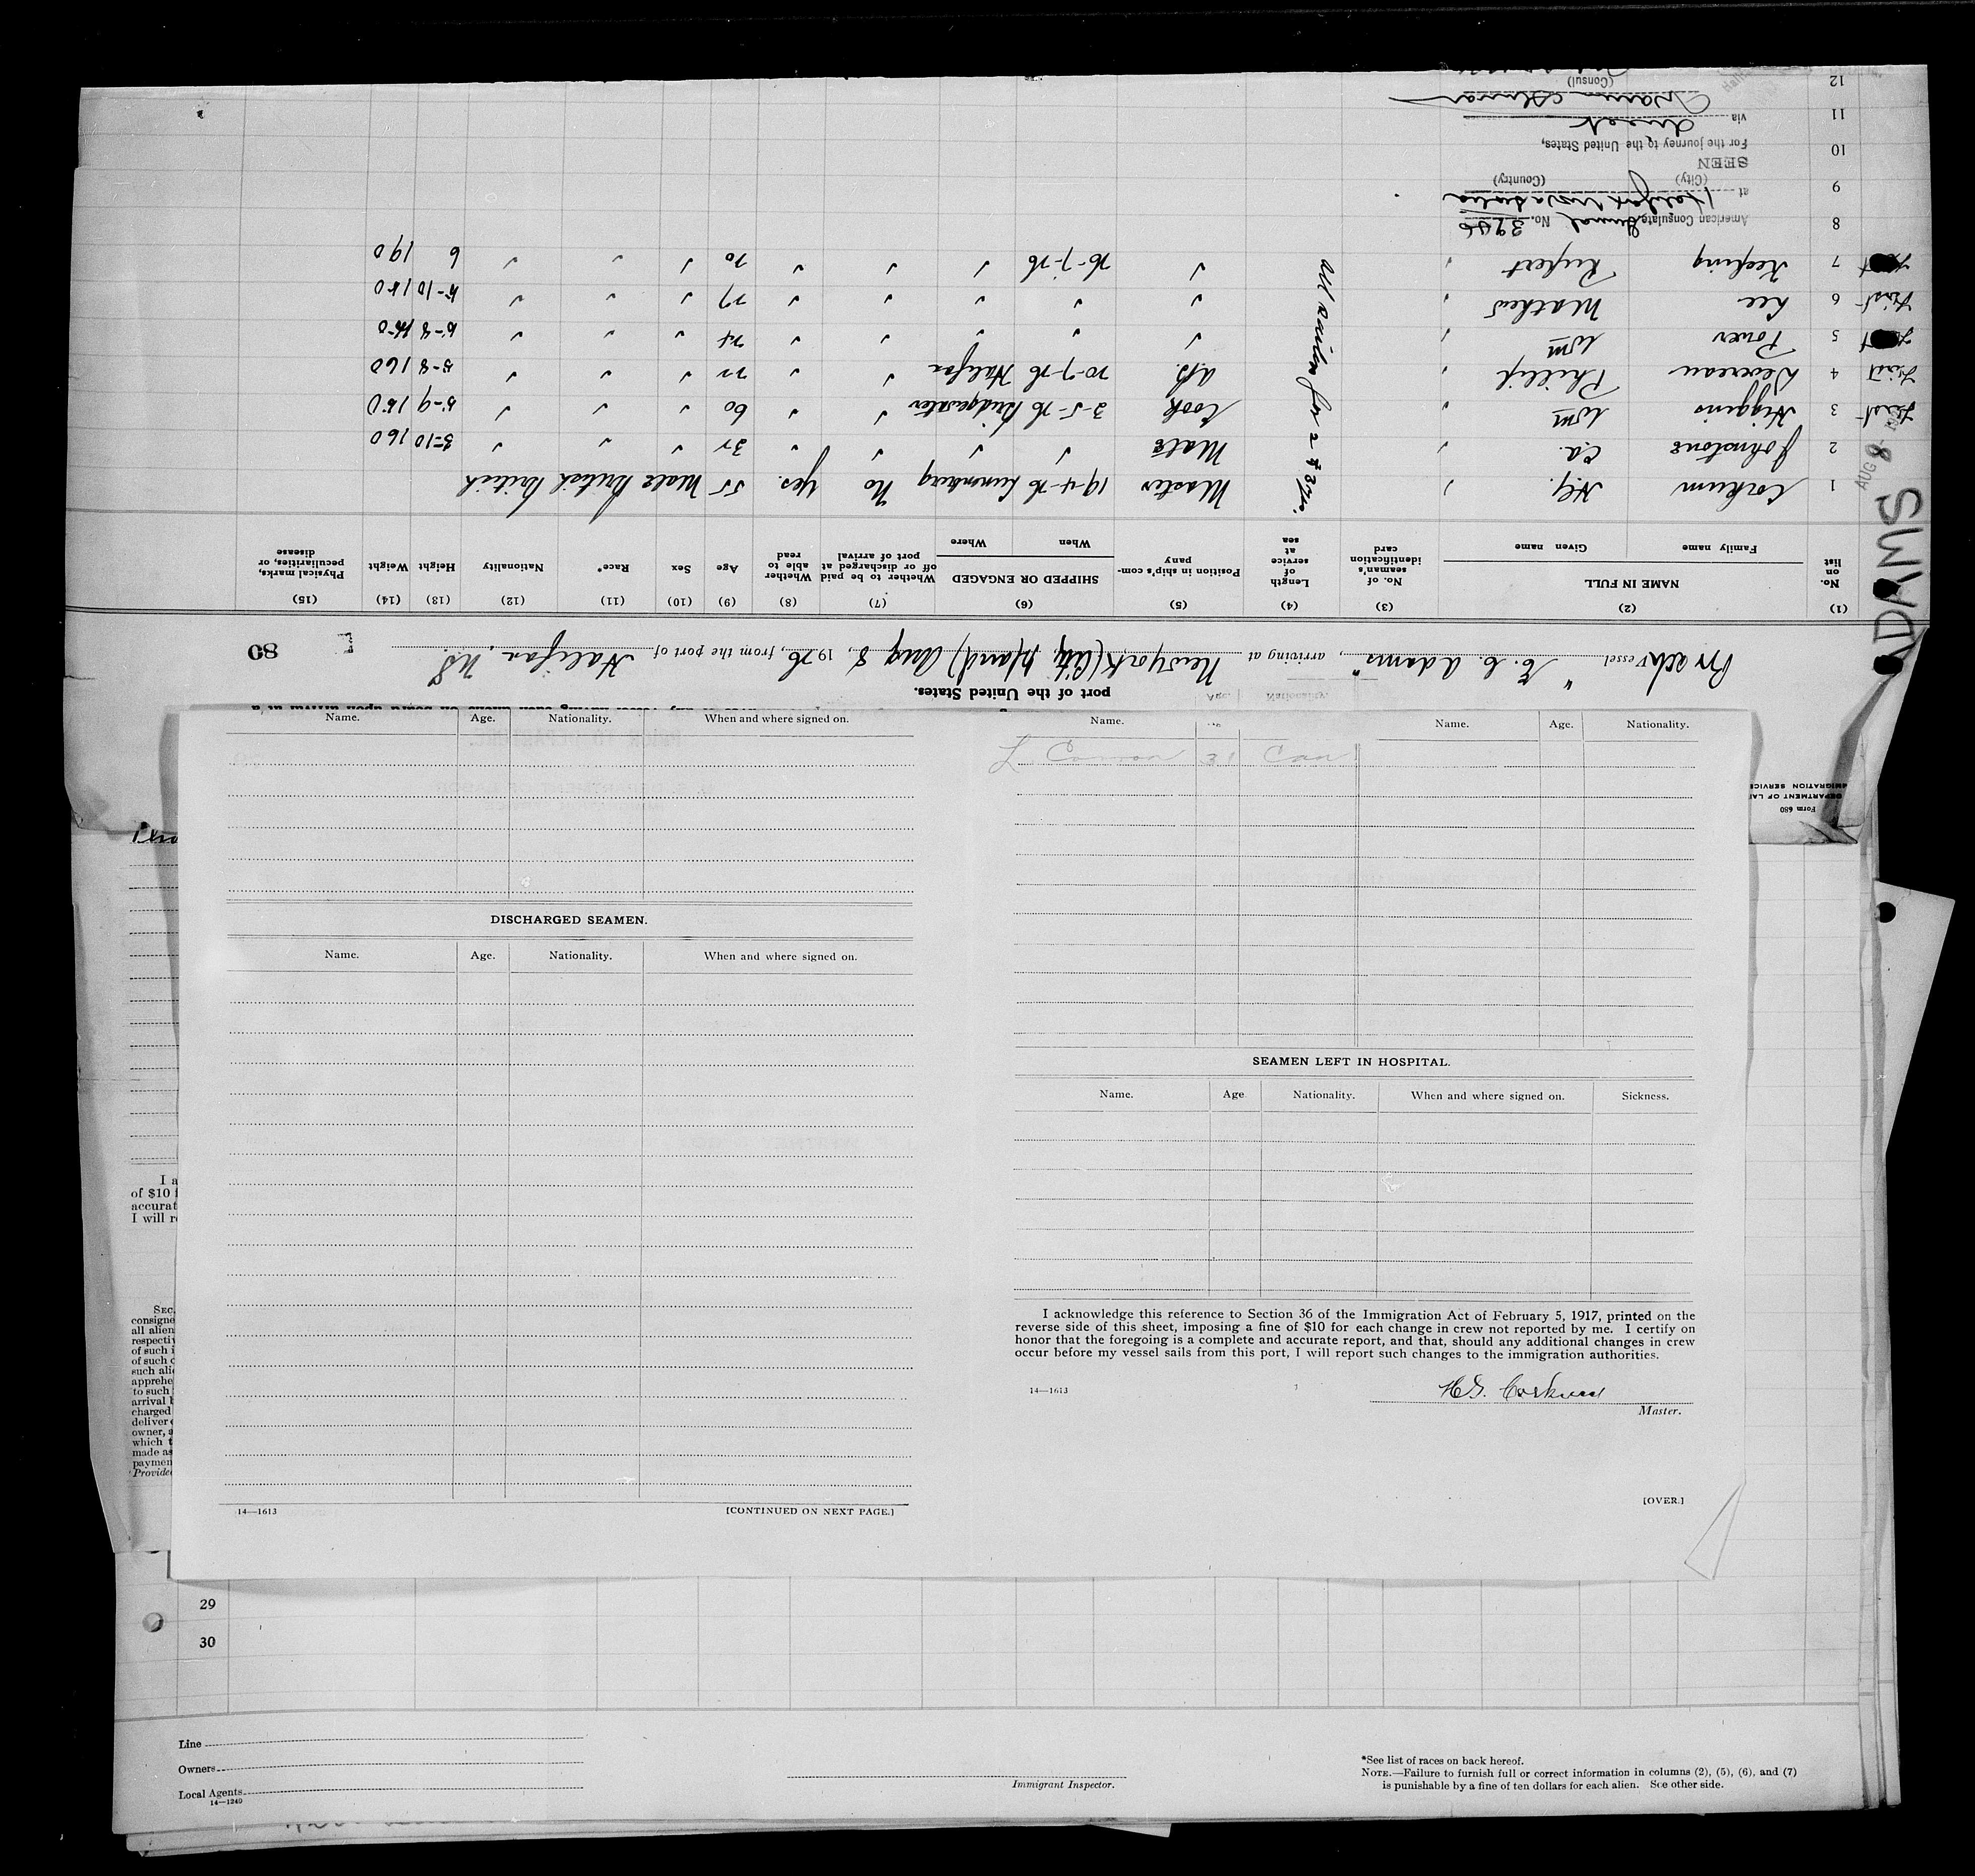 Name. Age. Nationality. When and where signed on.
DISCHARGED SEAMEN.
Name. Age. Nationality. When and where signed on.
14—1613 [CONTINUED ON NEXT PAGE.]
Name. Name. Age. Nationality.
31 Can
SEAMEN LEFT IN HOSPITAL.
Name. Age Nationality. When and where signed on. Sickness.
I acknowledge this reference to Section 36 of the Immigration Act of February 5, 1917, printed on the
reverse side of this sheet, imposing a fine of $10 for each change in crew not reported by me. I certify on
honor that the foregoing is a complete and accurate report, and that, should any additional changes in crew
occur before my vessel sails from this port, I will report such changes to the immigration authorities.
14—1613
H.G. Corkum
Master.
[OVER.]
29
30
Line
Owners
Local Agents
14—1240
Immigrant Inspector.
*See list of races on back hereof.
NOTE.—Failure to furnish full or correct information in columns (2), (5), (6), and (7)
is punishable by a fine of ten dollars for each alien. See other side.
I a
of $10 f
accurat
I will r
SEC.
consigne
all alien
respecti
of such i
of such c
such alie
apprehe
to such
arrival b
charged
deliver
owner, a
which t
made as
paymen
Provided
Form 680
DEPARTMENT OF LA
MIGRATION SERVICE
port of the United States.
Br Sch Vessel "E. C. Adams", arriving at New York (City Island) Aug 8, 1926, from the port of Halifax, NS.
80
ADAMS
AUG 8
(1) (2) (3) (4) (5) (6) (7) (8) (9) (10) (11) (12) (13) (14) (15)
No. on list
NAME IN FULL
Family name Given name
No. of seaman's identification card
Length of service at sea
Position in ship's company
SHIPPED OR ENGAGED
When Where
Whether to be paid off or discharged at port of arrival
Whether able to read
Age
Sex
Race*
Nationality
Height
Weight
Physical marks, peculiarities, or disease
1 Corkum H.G. Master 19-4-26 Lunenburg No Yes. 55 Male British British British
2 Johnstone C.A. ✓ Mate ✓ ✓ ✓ ✓ 32 ✓ ✓ ✓ 5-10 160
First 3 Higgins Wm ✓ Cook 3-5-26 Bridgewater ✓ ✓ 60 ✓ ✓ ✓ 5-9 150
First 4 Devereau Phillip ✓ A/B. 20-7-26 Halifax ✓ ✓ 22 ✓ ✓ ✓ 5-8 160
5 Power Wm ✓ ✓ ✓ ✓ ✓ ✓ 24 ✓ ✓ ✓ 5-8
First 6 Lee Mathew ✓ ✓ ✓ ✓ ✓ 27 ✓ ✓ ✓ 5-10 180
7 Keeping Rupert ✓ ✓ 26-7-26 ✓ ✓ ✓ 20 ✓ ✓ ✓ 6 190
All sailors for 2 & 3 yrs.
8
9
10
11
12
American Consulate General No. 3986
at Halifax Nova Scotia
(City) (Country)
SEEN
For the journey to the United States,
via direct
(Consul)